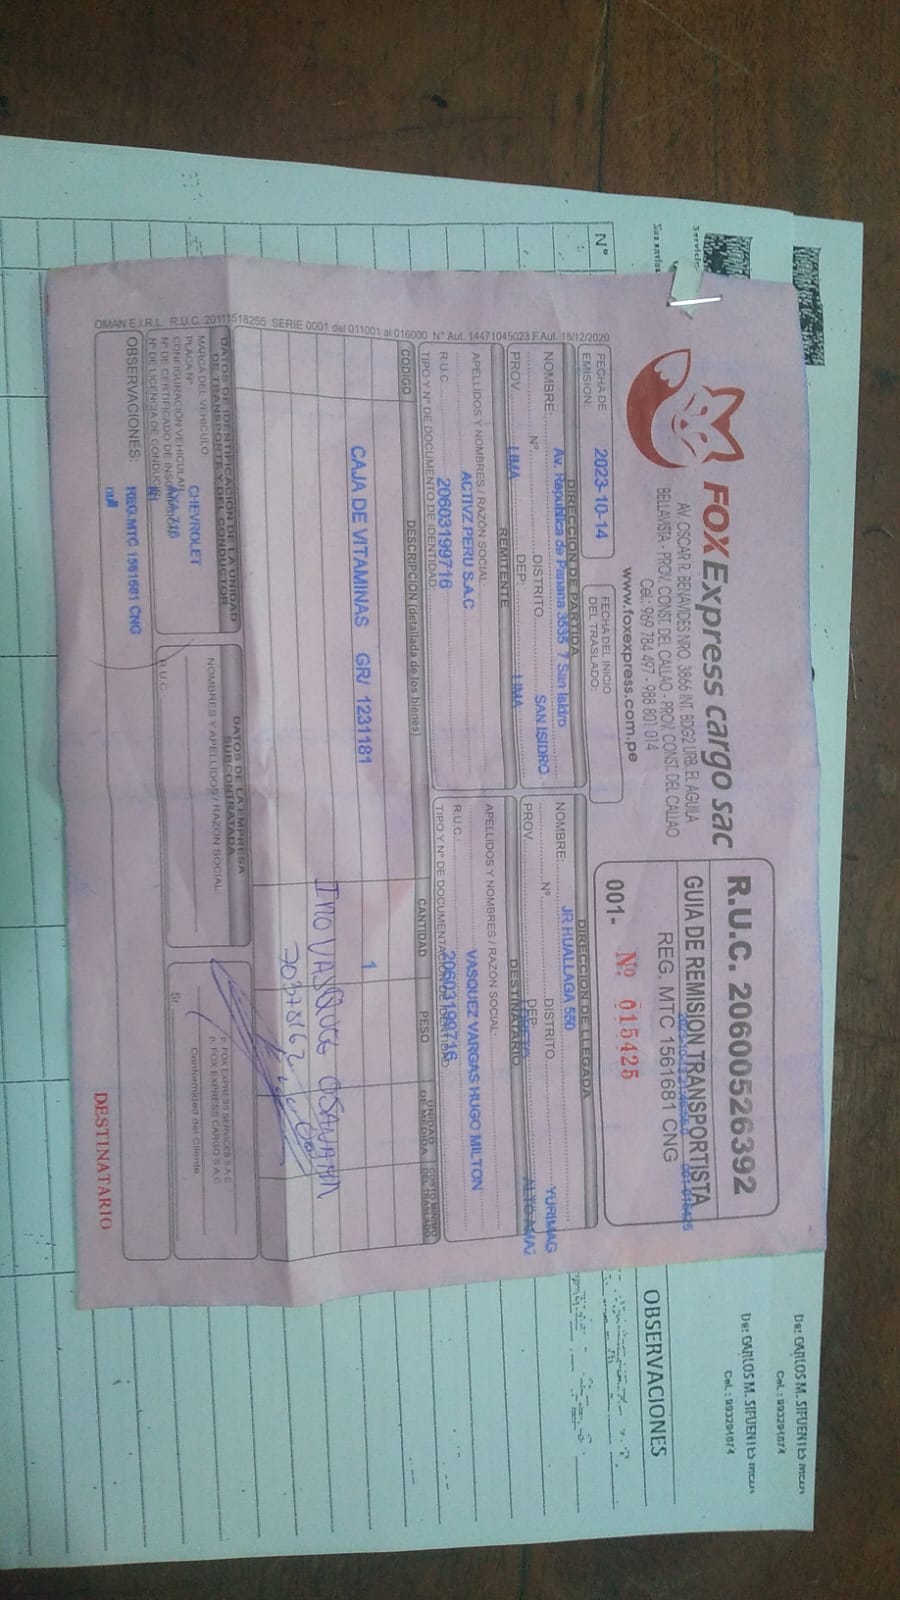 FOX Express cargo sac
AV. OSCAR R. BENAVIDES NRO. 3866 INT. BDG2 URB. EL AGUILA
BELLAVISTA - PROV. CONST. DEL CALLAO - PROV. CONST. DEL CALLAO
Cel.: 969 784 497 - 988 801 014
www.foxexpress.com.pe
R.U.C. 20600526392
GUIA DE REMISION TRANSPORTISTA
REG. MTC 1561681 CNG
001- Nº 015425
FECHA DE EMISIÓN: 2023-10-14
FECHA DEL INICIO DEL TRASLADO:
DIRECCION DE PARTIDA
Av. Republica de Panana 3535 7 San Isidro
NOMBRE:
Nº DISTRITO SAN ISIDRO
PROV. LIMA DEP: LIMA
DIRECCION DE LLEGADA
NOMBRE: JR HUALLAGA 550
Nº DISTRITO. YURIMAG
PROV. DEP:
REMITENTE
APELLIDOS Y NOMBRES / RAZÓN SOCIAL:
ACTIVZ PERU S.A.C
R.U.C. 20603199716
TIPO Y Nº DE DOCUMENTO DE IDENTIDAD:
DESTINATARIO
APELLIDOS Y NOMBRES / RAZÓN SOCIAL:
VASQUEZ VARGAS HUGO MILTON
R.U.C. 20603199716
CODIGO
DESCRIPCION (detallada de los bienes)
CANTIDAD
PESO
UNIDAD DE MEDIDA
COSTO MINIMO DEL TRASLADO
CAJA DE VITAMINAS GR/ 1231181 1
DATOS DE IDENTIFICACION DE LA UNIDAD DE TRANSPORTE Y DEL CONDUCTOR
MARCA DEL VEHICULO: CHEVROLET
PLACA Nº
CONFIGURACIÓN VEHICULAR
Nº DE CERTIFICADO DE
Nº DE LICENCIA DE CONDUCIR
DATOS DE LA EMPRESA SUBCONTRATADA
NOMBRES Y APELLIDOS / RAZÓN SOCIAL
R.U.C.
p. FOX EXPRESS SERVICES S.A.C
p. FOX EXPRESS CARGO S.A.C
Conformidad del Cliente
Sr.
OBSERVACIONES: REG.MTC 1561681 CNG
null
DESTINATARIO
OMAN E.I.R.L. R.U.C. 20111518255 SERIE 0001 del 011001 al 016000 Nº Aut. 14471045023 F.Aut. 18/12/2020
Nº
OBSERVACIONES
De: CARLOS M. SIFUENTES
Cel.: 993291874
De: CARLOS M. SIFUENTES
Cel.: 993291874